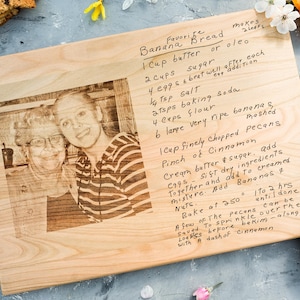 Favorite
Banana Bread makes 2
1 Cup butter or oleo
2 cups sugar
4 eggs & beat well after each addition
1/2 tsp salt
2 tsps baking soda
4 cups flour
6 large very ripe bananas, mashed
1 cup finely chopped pecans
Pinch of Cinnamon
Cream butter & sugar, add
eggs - sift dry ingredients
together and add to creamed
mixture. Add Bananas &
Nuts.
Bake at 250° 1 to 2 hrs
A few of the pecans can be
saved to sprinkle over the
before baking along
with a dash of cinnamon